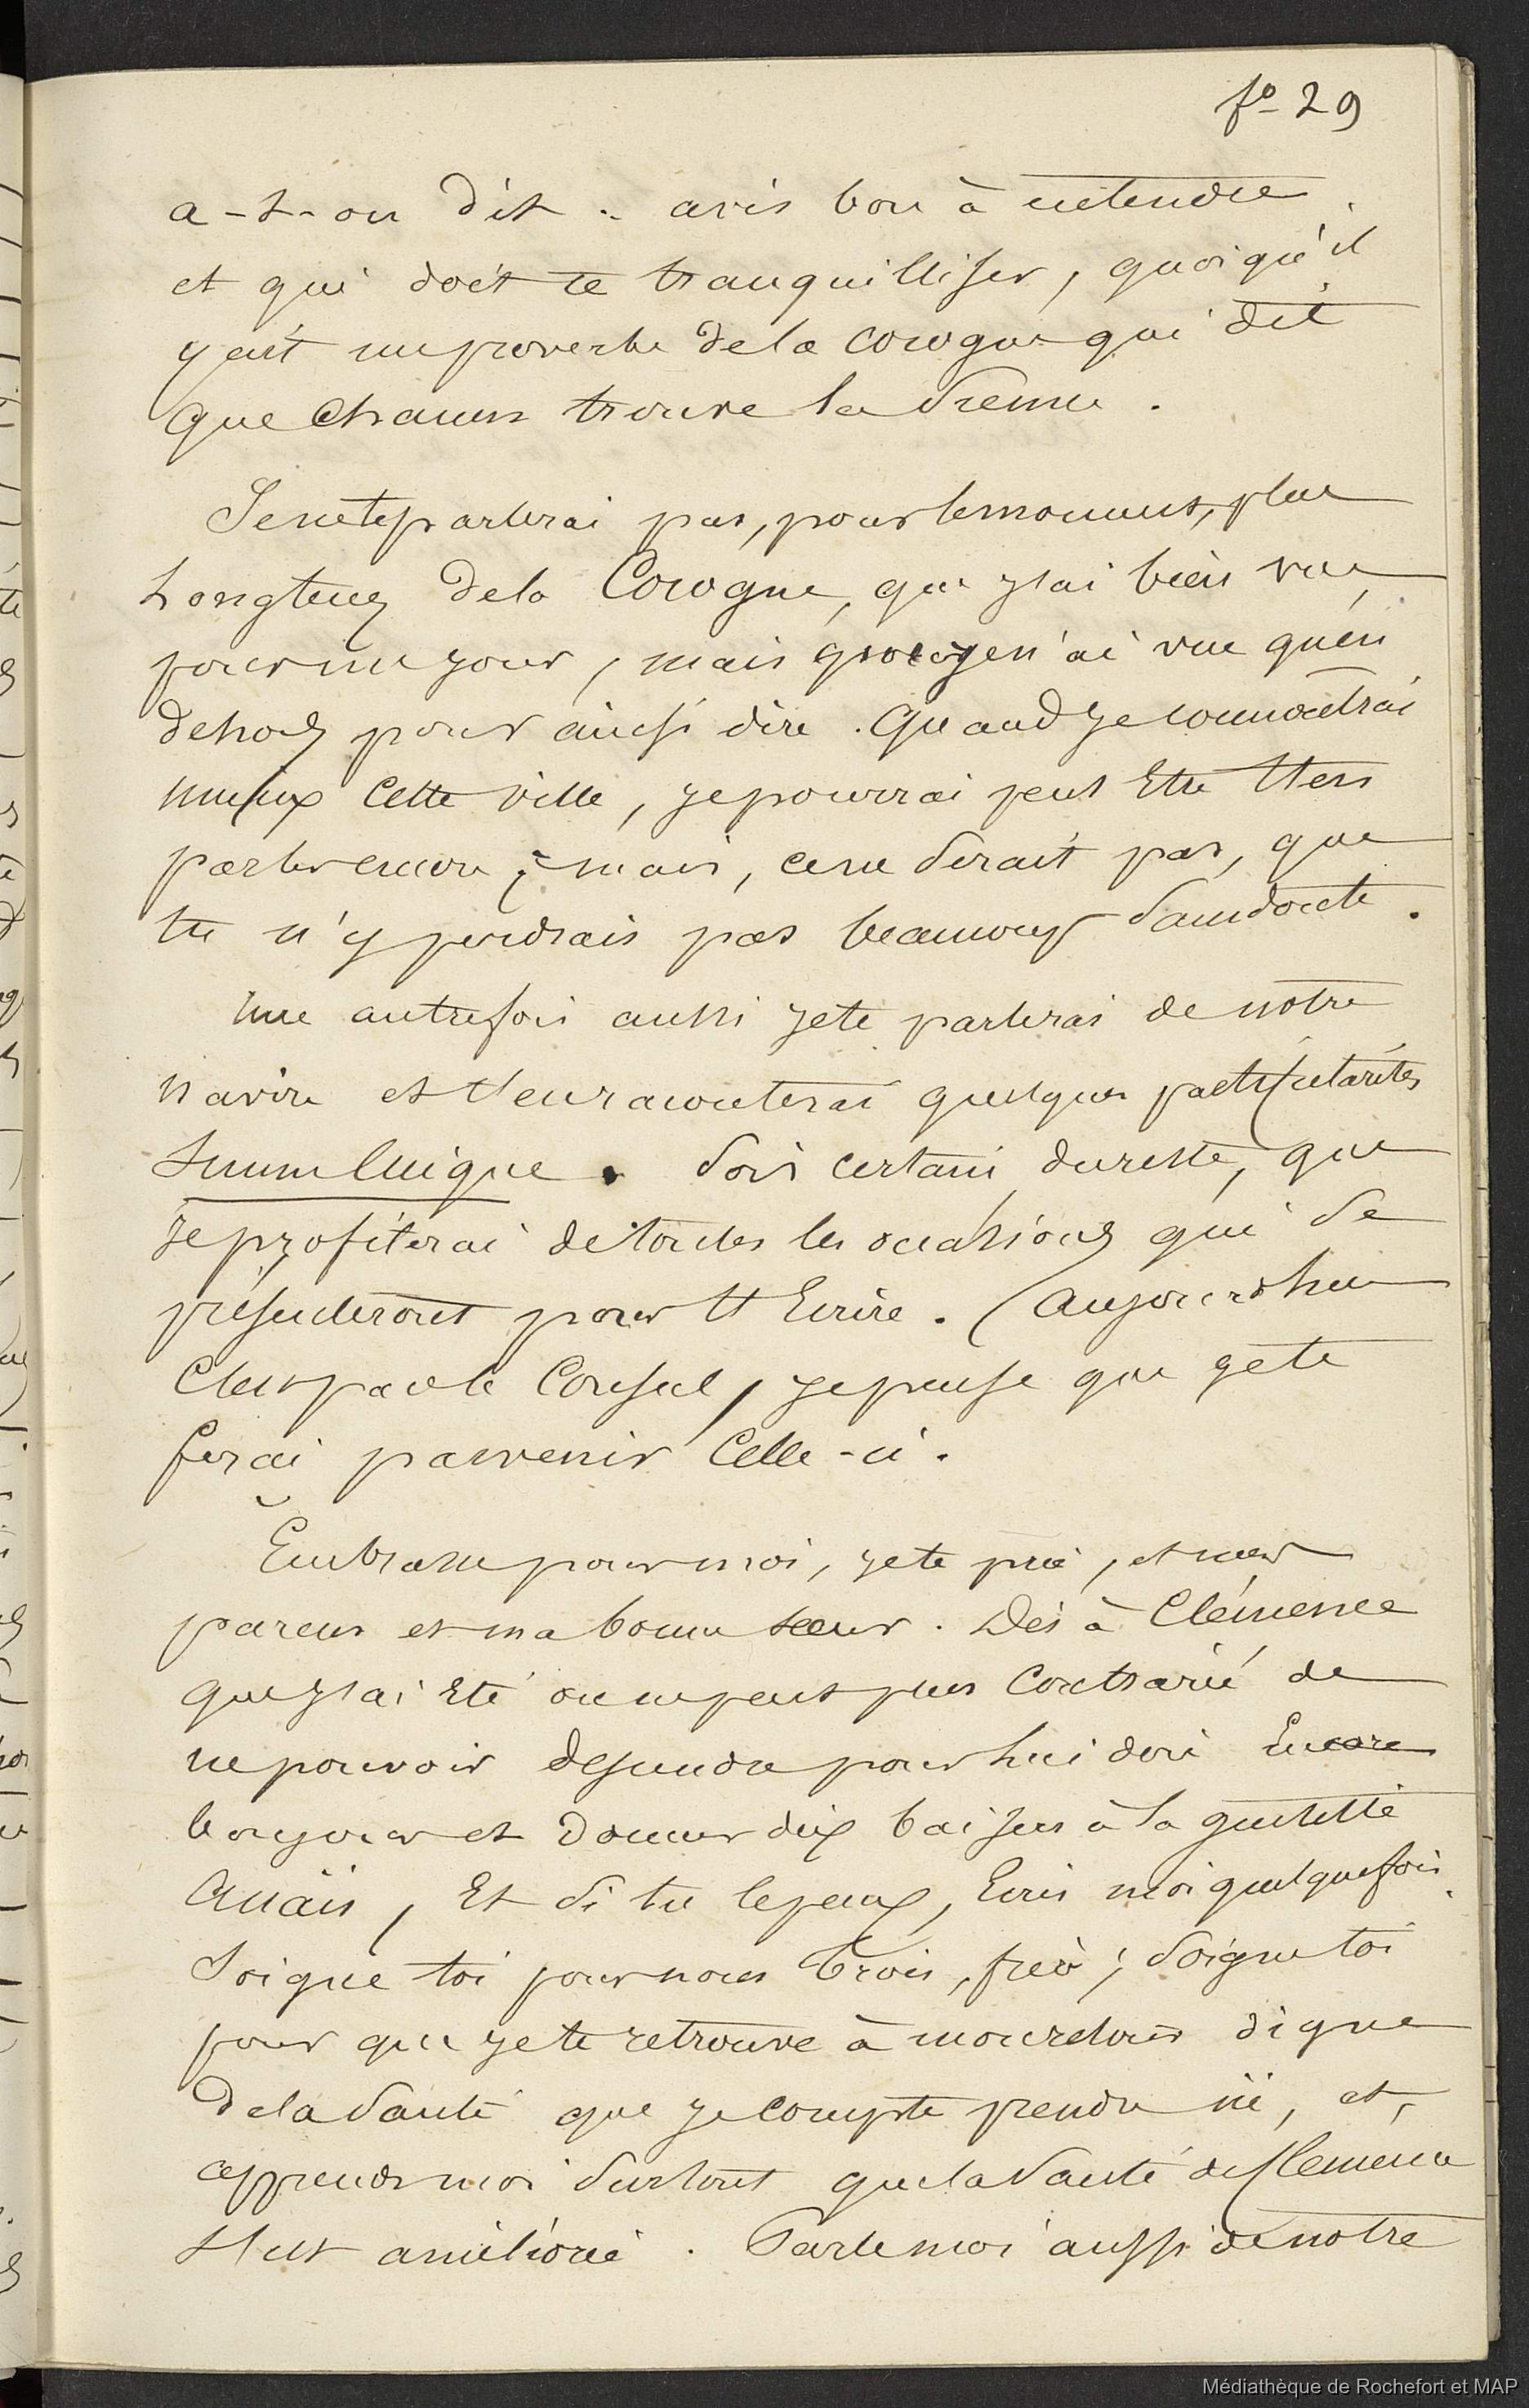 fo 29
a-t-on dit : avis bon à entendre
et qui doit te tranquilliser, quoiqu'il
y ait un proverbe de la corogne qui dit
que chacun trouve la sienne.
Je ne te parlerai pas, pour le moment, plus
Longtems de la Corogne, que j'ai bien vue,
pour un jour, mais que je n'ai vue qu'en
dehors pour ainsi dire. Quand je connoitrai
mieux cette ville, je pourrai peut Etre t'en
parler encore ; mais, ce ne serait pas, que
tu n'y perdrais pas beaucoup sans doute.
Une autre fois aussi je te parlerai de notre
navire et t'en raconterai quelques particularités
. Sois certain, du reste, que
je profiterai de toutes les occasions qui se
présenteront pour t'Ecrire. Aujourd'hui
C'est par le Consul, je pense que je te
ferai parvenir Celle-ci.
Embrasse pour moi, je te prie, et mes
parens et ma bonne sœur. Dis à Clémence
que j'ai Eté on ne peut plus Contrarié de
ne pouvoir descendre pour lui dire Encore
bonjour et donner dix baisers à la
Anaïs, Et si tu le peux, Ecris moi quelquefois.
Soigne toi pour nous trois, frère ; soigne toi
pour que je te retrouve à mon retour digne
de la santé que je compte prendre ici, et,
apprends moi surtout que la santé de Clemence
s'est améliorée. Parle moi aussi de notre
Médiathèque de Rochefort et MAP